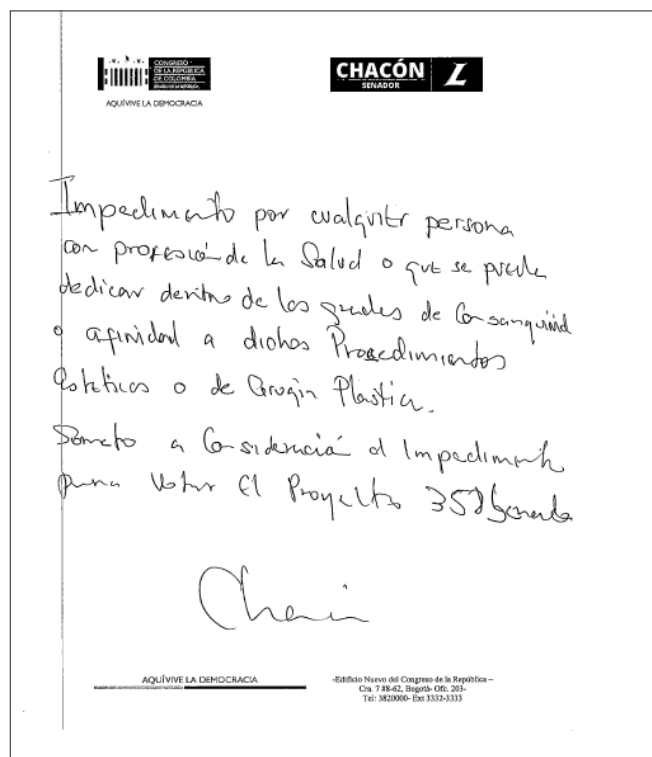 CONGRESO
DE LA REPÚBLICA
DE COLOMBIA
AQUÍVIVE LA DEMOCRACIA
CHACÓN
SENADOR
L
Impedimento por cualquier persona
con profesión de la Salud o que se pueda
dedicar dentro de los grados de Consanguinid
o afinidad a dichos Procedimientos
Esteticos o de Cirugia Plastica.
Someto a Consideración el Impedimento
para Votar El Proyecto 358 Senado
AQUÍVIVE LA DEMOCRACIA
-Edificio Nuevo del Congreso de la República –
Cra. 7 #8-62, Bogotá- Ofc. 203-
Tel: 3820000- Ext 3332-3333